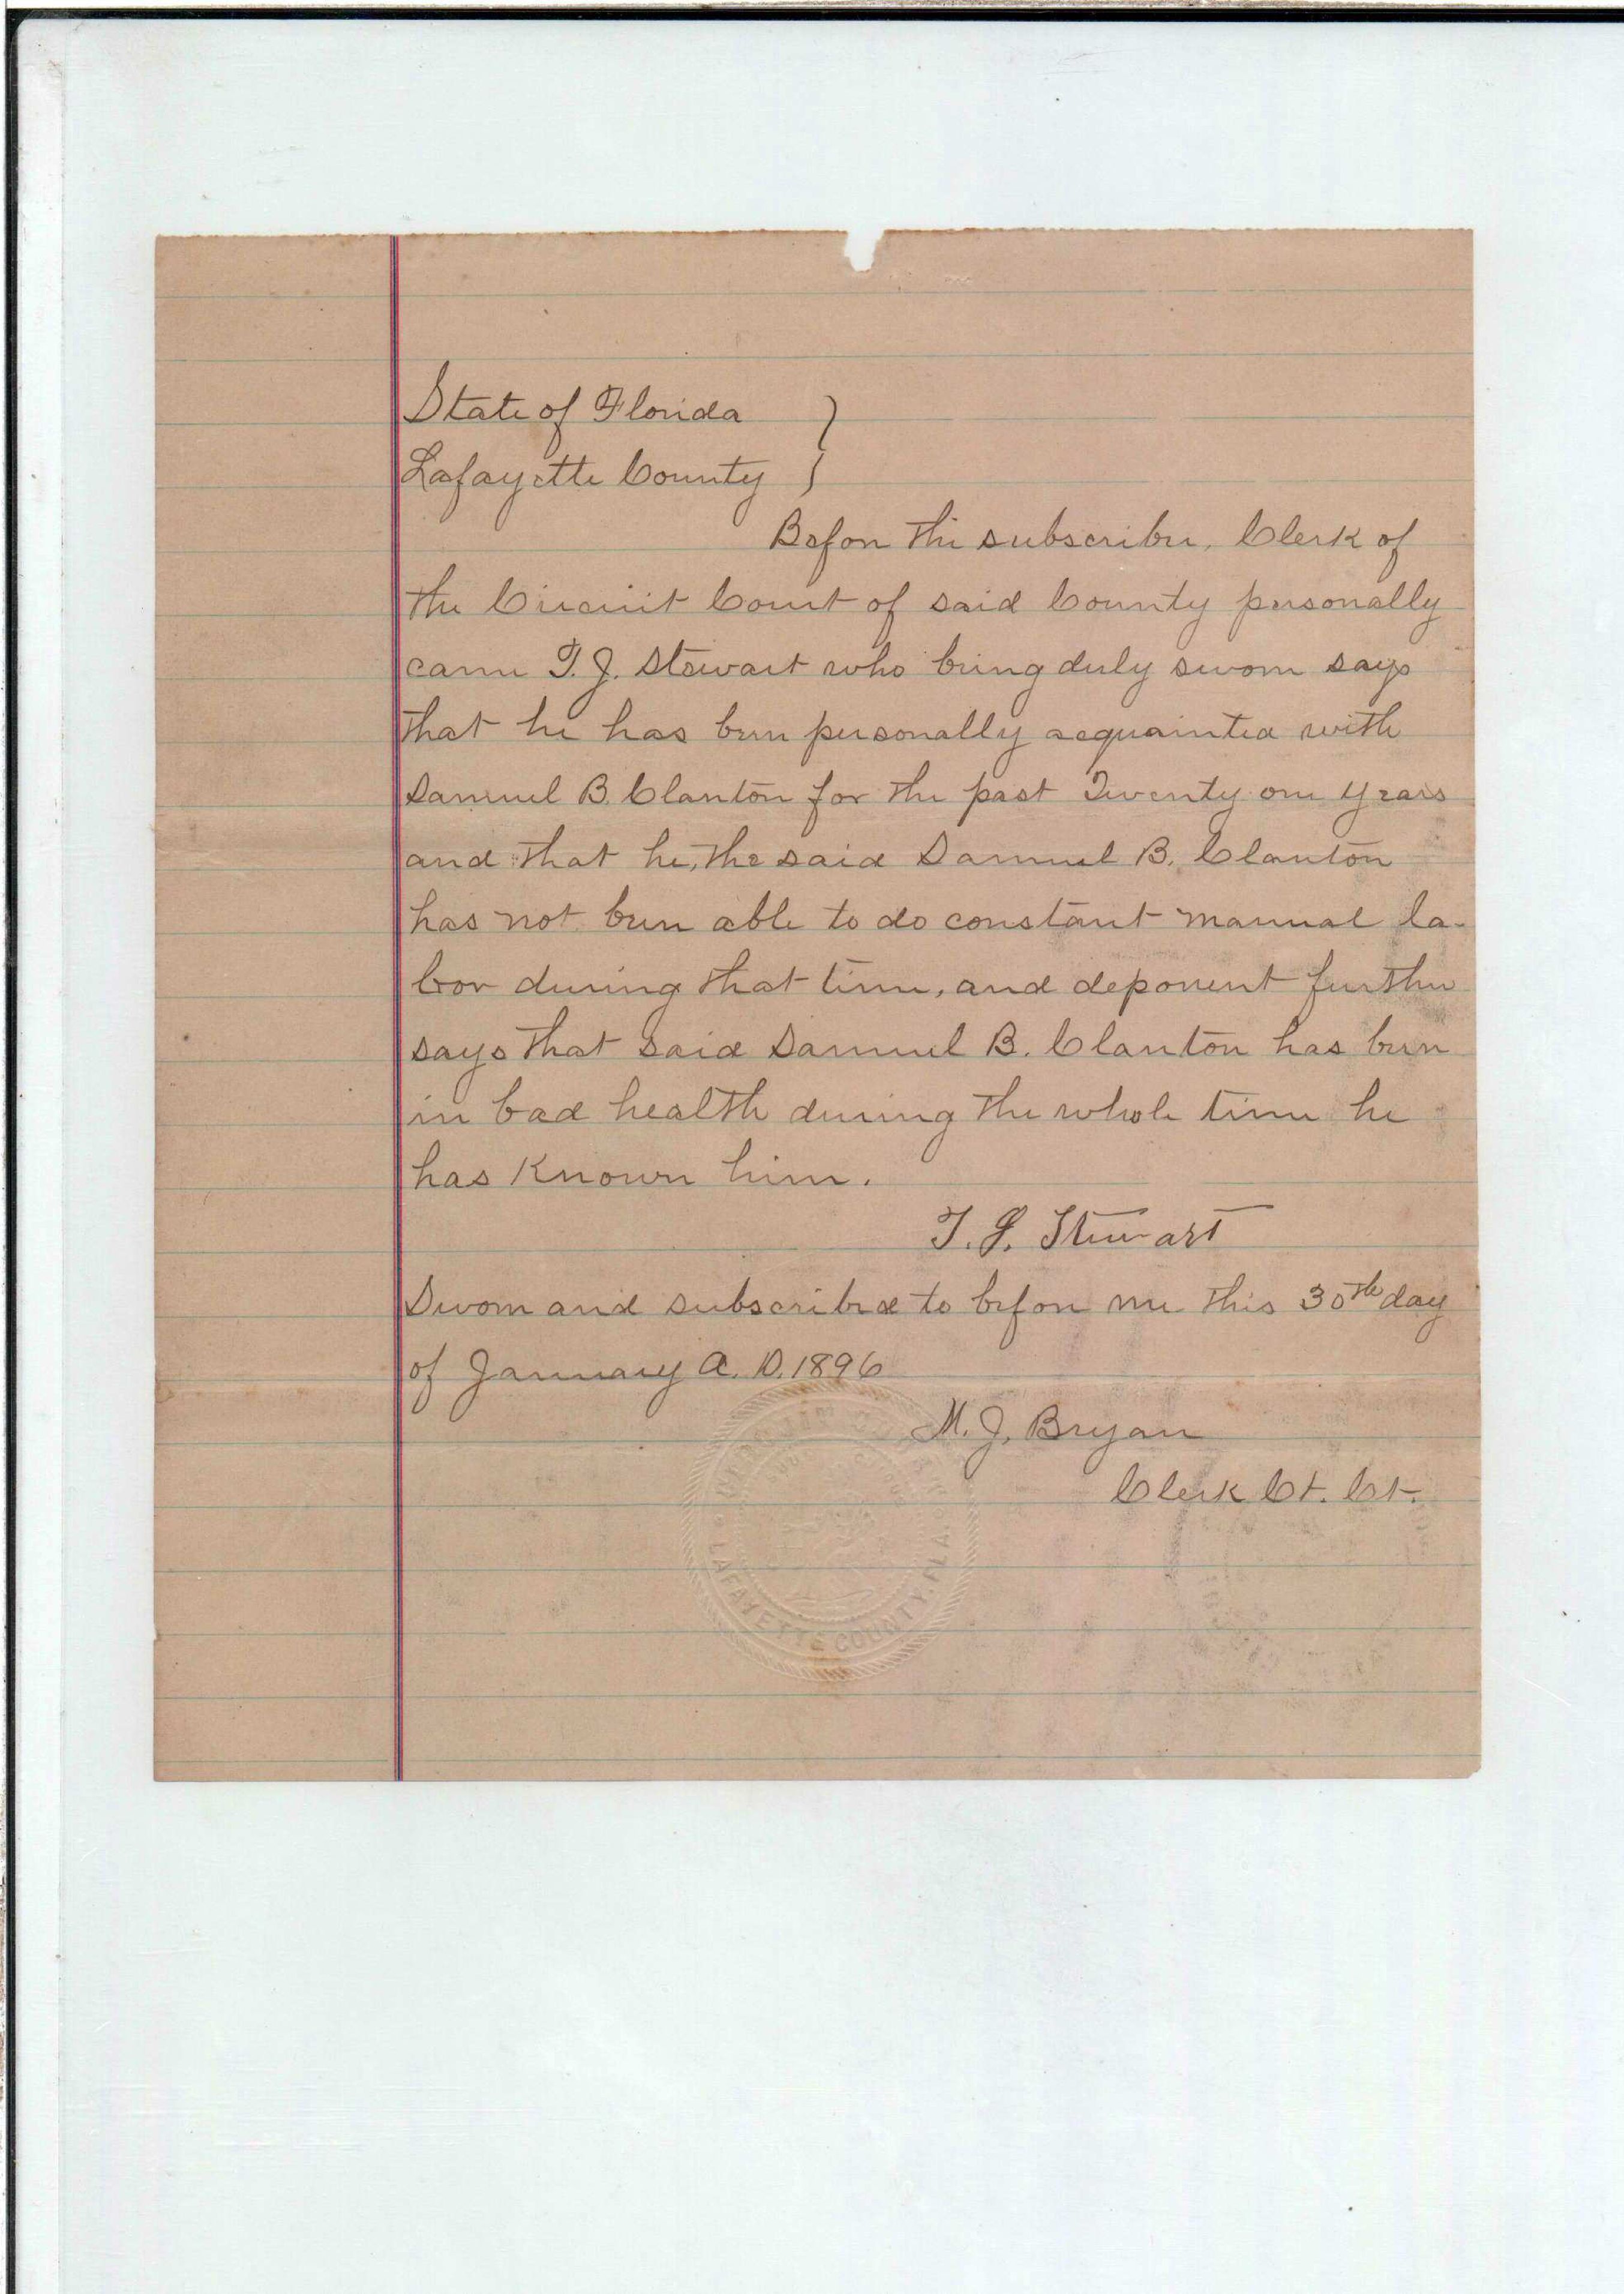 State of Florida }
Lafayette County }
Before the subscriber, Clerk of
the Circuit Court of said County personally
came T. J. Stewart who being duly sworn says
that he has been personally acquainted with
Samuel B. Clanton for the past Twenty one years
and that he, the said Samuel B. Clanton
has not been able to do constant manual la-
bor during that time, and deponent further
says that said Samuel B. Clanton has been
in bad health during the whole time he
has known him.
T. J. Stewart
Sworn and subscribed to before me this 30th day
of January A. D. 1896
M. J. Bryan
Clerk Ct. Ct.
LAFAYETTE COUNTY, FLA.